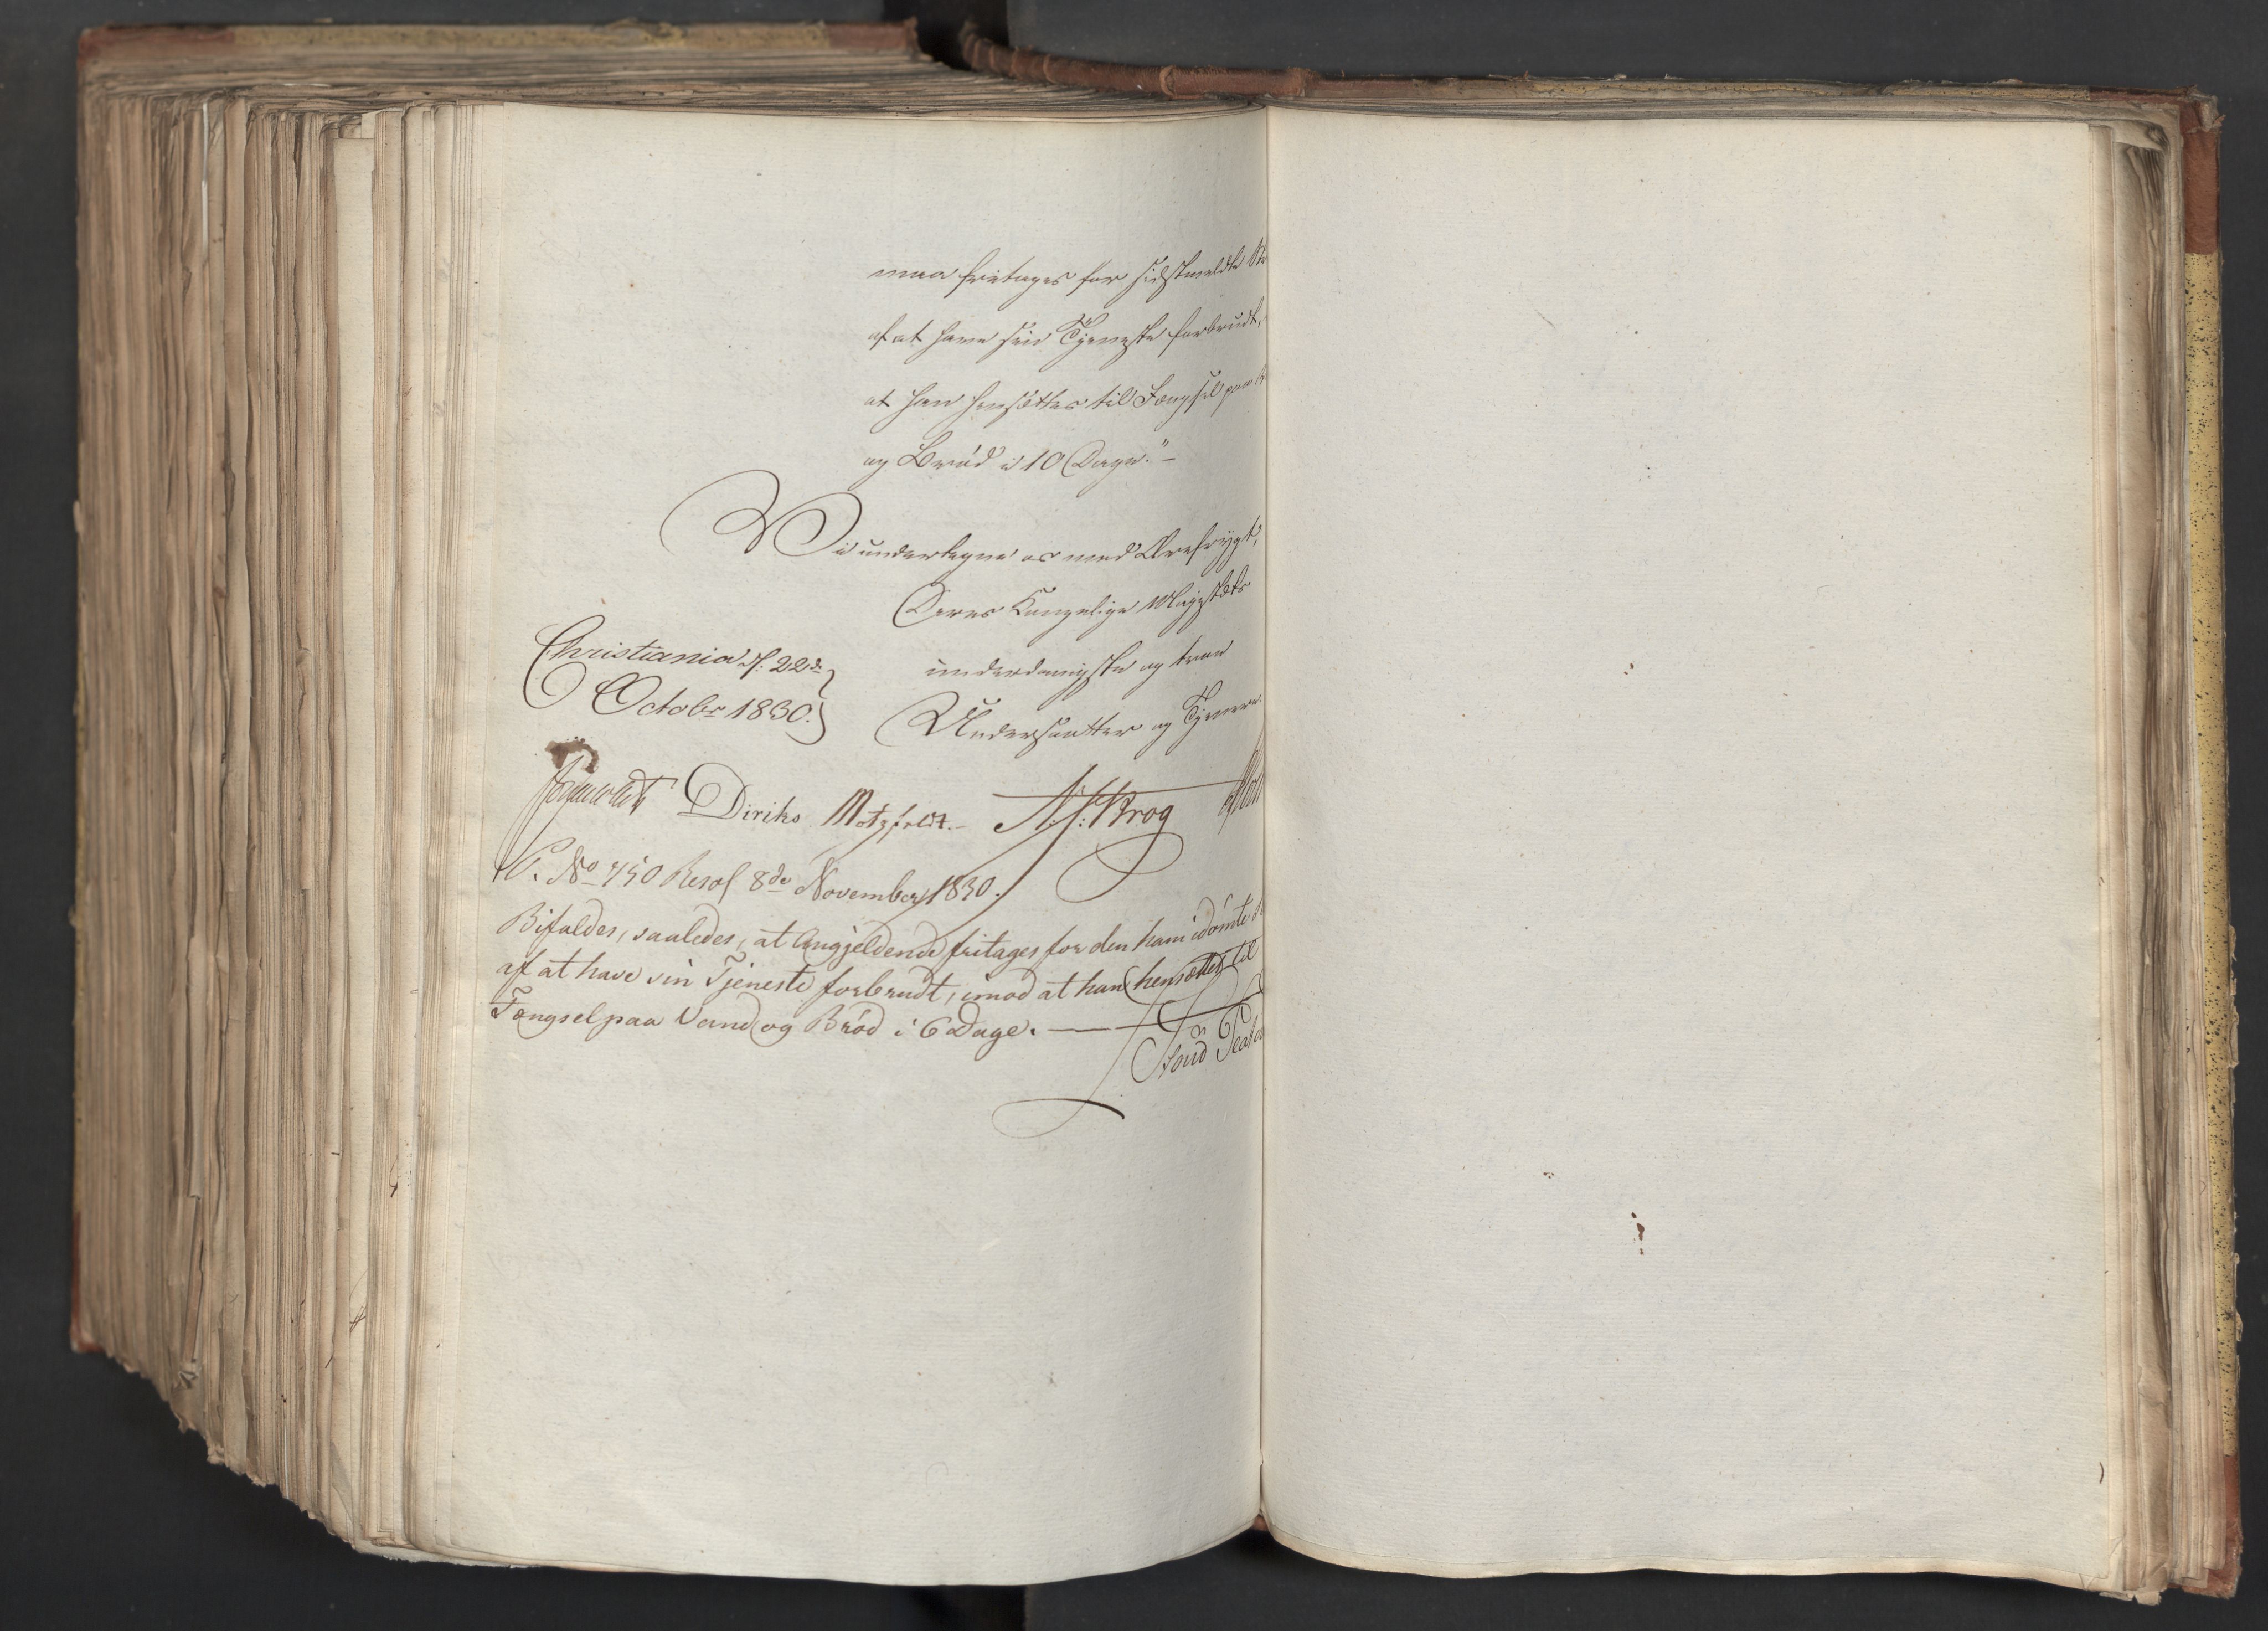 maa fritages for sidstmeldte
af at have sin Tjeneste forbrudt,
at han hensættes til Fængsel paa
og Brød i 10 Dage." –
Vi undertegne os med Ærefrygt,
Deres Kongelige Majestæts
underdanigste og troe
Undersaatter og Tjenere.
Christiania d. 22de
Octobr 1830.
Diriks Motzfeldt. – Krog
P. No 750 Resol 8de November 1830.
Bifaldes, saaledes, at Angjeldende fritages for den ham idømte
af at have sin Tjeneste forbrudt, imod at han hensættes til
Fængsel paa Vand og Brød i 6 Dage. —